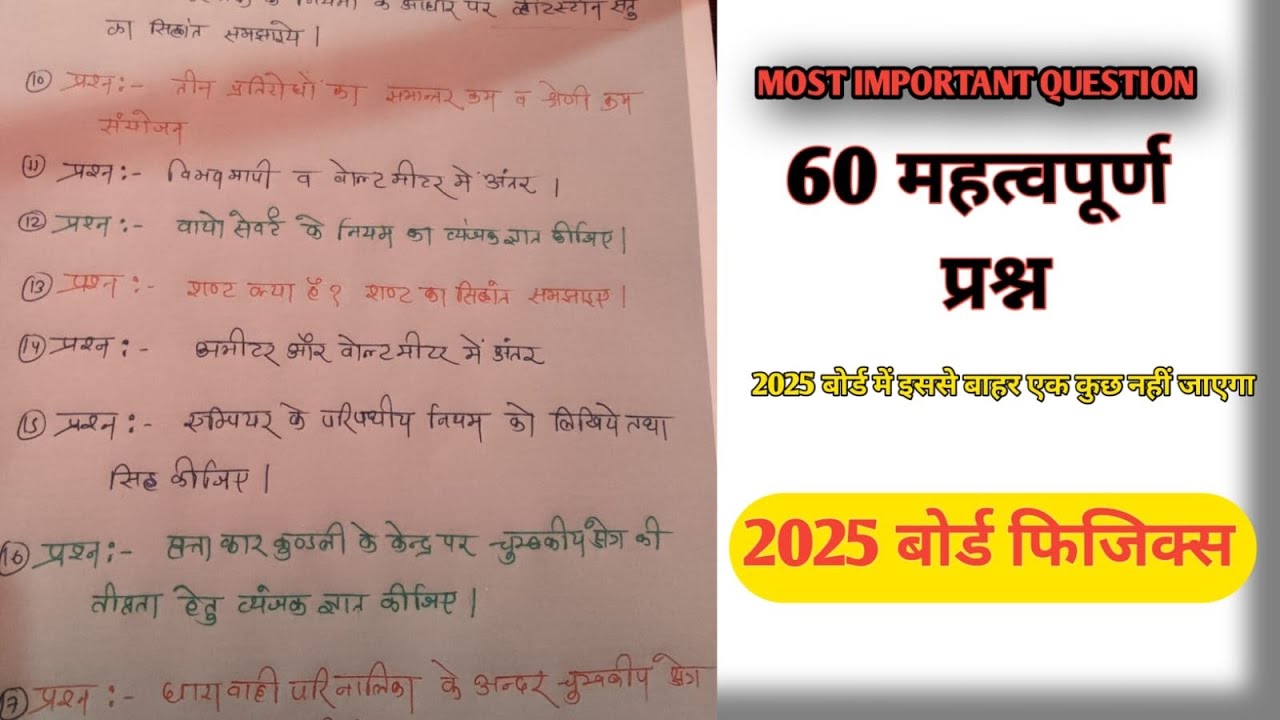 के नियमों के आधार पर व्हीटस्टोन सेतु
का सिद्धांत समझाइये |
(10) प्रश्न:- तीन प्रतिरोधों का समान्तर क्रम व श्रेणी क्रम
संयोजन
(11) प्रश्न:- विभवमापी व वोल्टमीटर में अंतर |
(12) प्रश्न:- वायो सेवर्ट के नियम का व्यंजक ज्ञात कीजिए |
(13) प्रश्न:- शण्ट क्या है ? शण्ट का सिद्धांत समझाइए |
(14) प्रश्न:- अमीटर और वोल्टमीटर में अंतर
(15) प्रश्न:- एम्पियर के परिपथीय नियम को लिखिये तथा
सिद्ध कीजिए |
(16) प्रश्न:- वृत्ताकार कुण्डली के केन्द्र पर चुम्बकीय क्षेत्र की
तीव्रता हेतु व्यंजक ज्ञात कीजिए |
प्रश्न:- धारावाही परिनालिका के अन्दर चुम्बकीय क्षेत्र
MOST IMPORTANT QUESTION
60 महत्वपूर्ण
प्रश्न
2025 बोर्ड में इससे बाहर एक कुछ नहीं जाएगा
2025 बोर्ड फिजिक्स